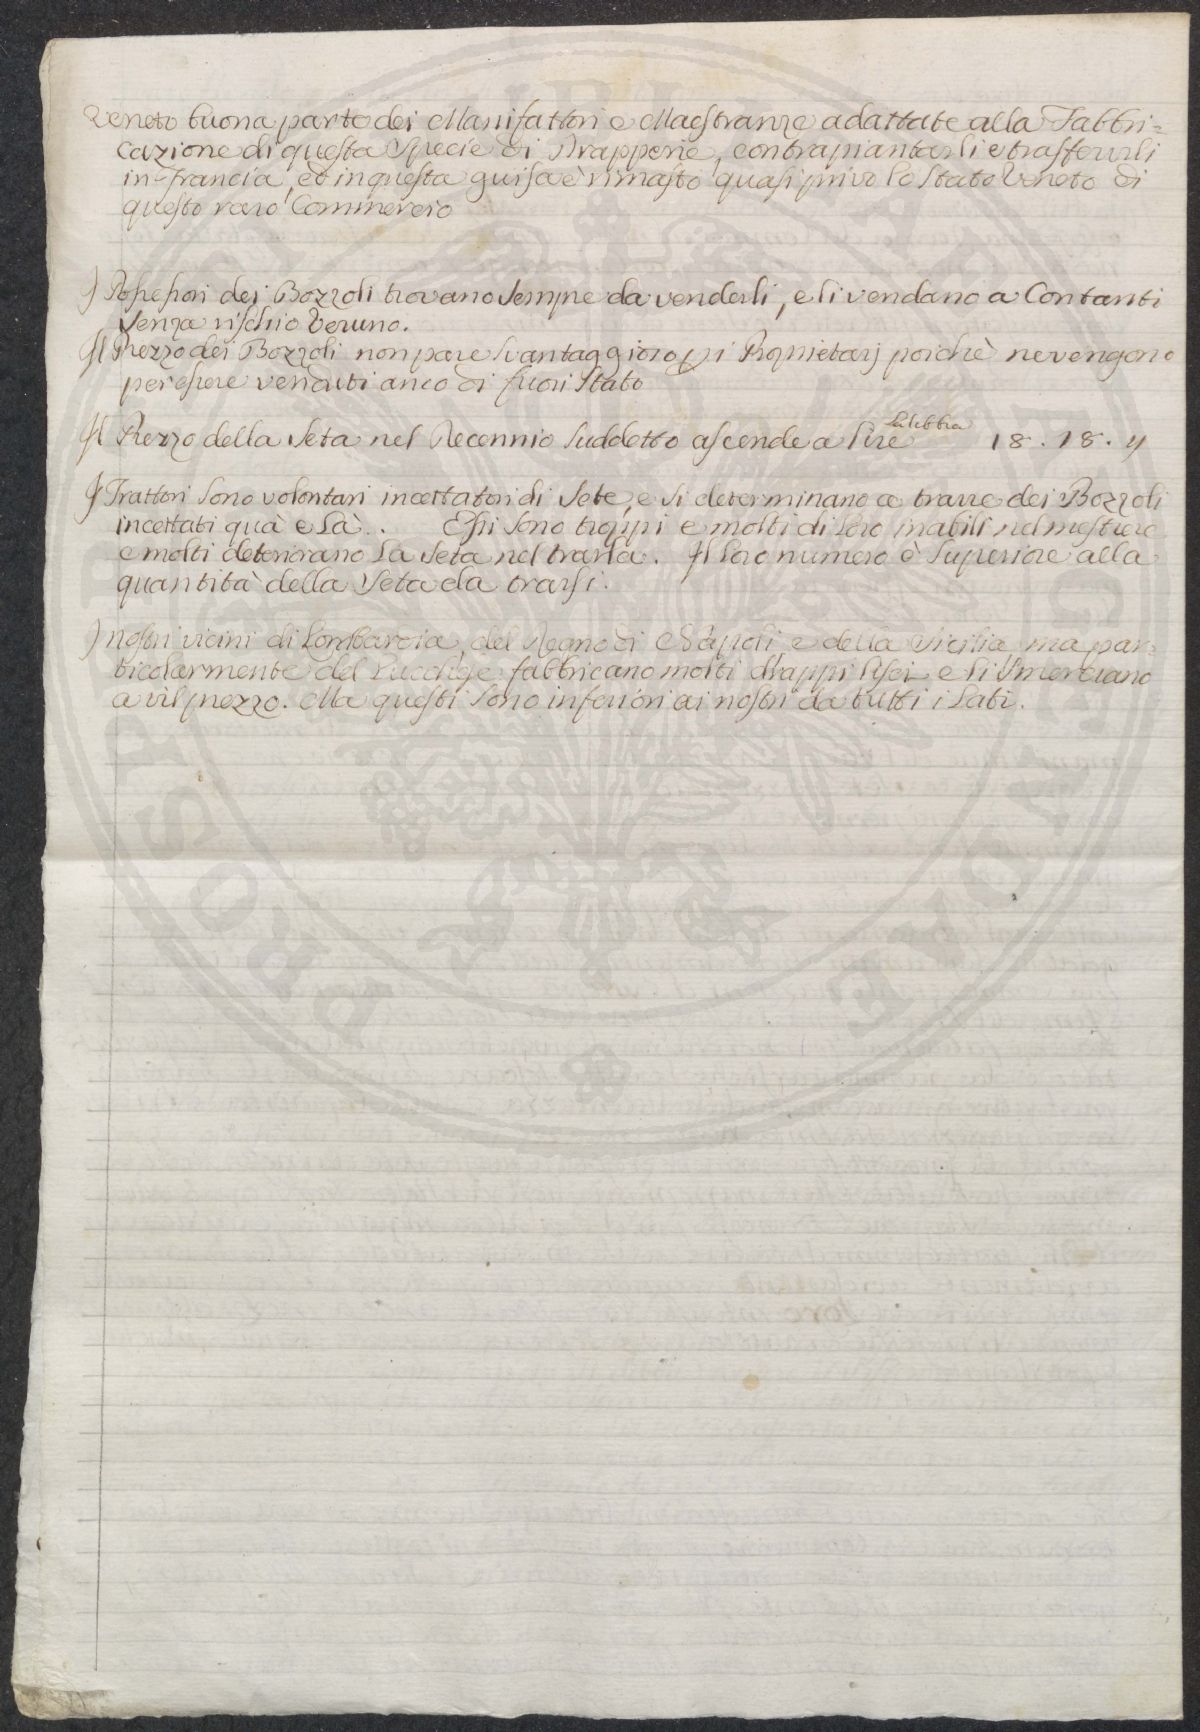 Veneto buona parte dei Manifattori e Maestranze adattate alla Fabbri=
cazione di questa Specie di Drapperie, contrapiantarli e trasferirli
in Francia, ed in questa guisa è rimasto quasi privo lo Stato Veneto di
questo raro Commercio
I Possessori dei Bozzoli trovano Sempre da venderli, e li vendano a Contanti
Senza rischio Veruno.
Il Prezzo dei Bozzoli non pare Svantaggioso pi Proprietarj poichè ne vengono
per essere venduti anco di fuori Stato
Il Prezzo della Seta nel Decennio Suddetto ascende a Lire la libbra 18. 18. 4
I Trattori Sono volontari incettatori di Sete, e Si determinano a trarre dei Bozzoli
incettati quà e Là. Essi Sono troppi e molti di Loro inabili nel mestiere
e molti deteriorano La Seta nel trarla. Il loro numero è Superiore alla
quantità della Seta da trarsi.
I nostri vicini di Lombardia, del Regno di Napoli, e della Sicilia, ma par=
ticolarmente del Lucchese fabbricano molti drappi lisci e li Smerciano
a vil prezzo. Ma questi Sono inferiori ai nostri da tutti i Lati.